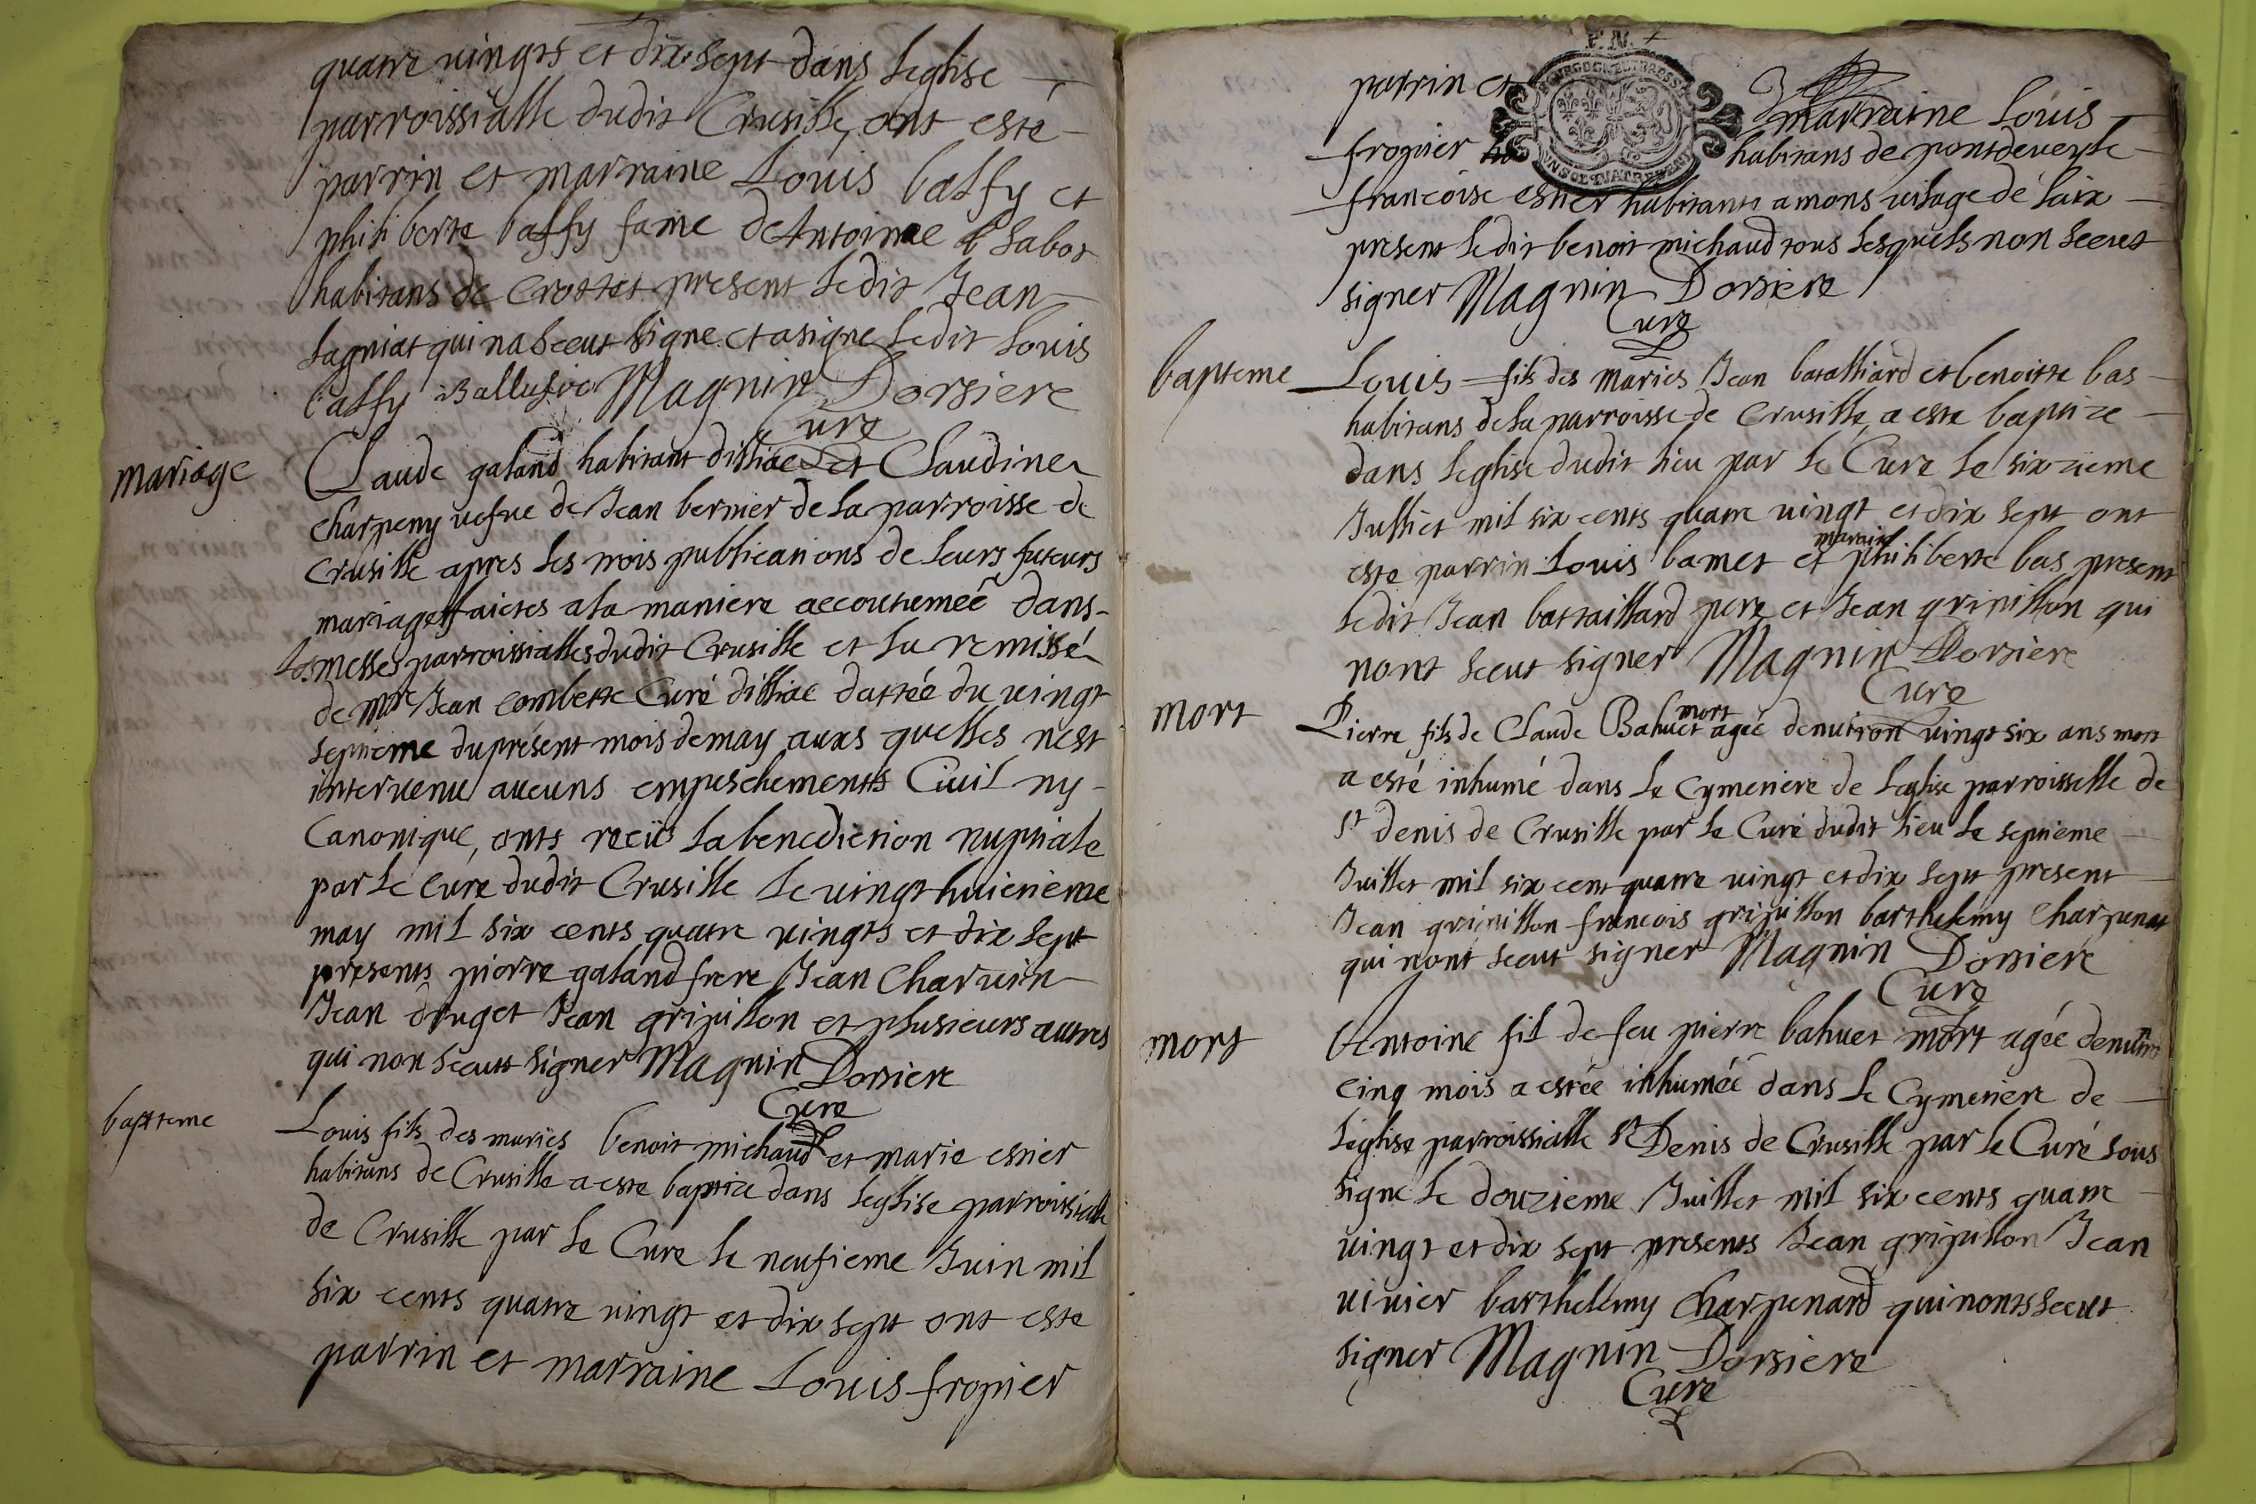 quatre vingts et dix sept dans Leglise
parroissialle dudit Crusille, ont esté
parrin et marraine Louis balfy et
philiberte balfy fame de Antoinne Sabot
habitans de Crottet present Ledit Jean
Lagniat qui na Sceut signe et a signe Ledit Louis
balfy Magnin Dorsiere
Cure
mariage
Claude galand habitant dilliac et Claudine
Charpeny vefve de Jean bernier de La parroisse de
Crusille apres Les trois publications de Leurs futeurs
mariage faictes a la maniere accoutumeé dans
Les messes parroissialles dudit Crusille et La remisse
de Mre Jean Combette Curé dilliac dattée du vingt
septieme du present mois de may auxs quelles nest
intervenu aucuns empeschements Civil ny
Canonique, onts reciu La benediction nuptiale
par Le Cure dudit Crusille Le vingt huictieme
may mil six cents quatre vingts et dix sept
presents pierre galand frere Jean Charvin
Jean druget Jean gripillon et plusieurs autres
qui non sceutt signer Magnin Dorsiere
Cure
baptteme
Louis fils des mariés benoit michaud et marie esnier
habitans de Crusille a este baptize dans Leglise parroissialle
de Crusille par Le Cure Le neufieme Juin mil
six cents quatre vingt et dix sept ont este
parrin et marraine Louis fropier
F.N.
BOURGOGNE ET BRESSE
UN SOL QUATRE DEN
parrin et marraine Louis
fropier habitans de pontdevesle
francoise esnier habitante a mons vilage de Laix
present Ledit benoit michaud tous Lesquels non sceut
signer Magnin Dorsiere
Cure
bapteme
Louis fils des mariés Jean batalliard et benoitte bas
habitans de La parroisse de Crusille a este baptize
dans Leglise dudit Lieu par Le Cure Le sixzieme
Julliet mil six cents quatre vingt et dix sept ont
este parrin Louis bamet et marraine philiberte bas present
Ledit Jean battaillard pere et Jean gripillon qui
nont sceut signer Magnin Dorsiere
Cure
mort
Pierre fils de Claude Bahuet mort agée denviron vingt six ans mort
a esté inhumé dans Le Cymetiere de Leglise parroisselle de
St denis de Crusille par Le Curé dudit Lieu Le septieme
Juillet mil six cent quatre vingt et dix sept present
Jean gripillon francois gripillon barthelemy Charpenat
qui nont sceut signer Magnin Dorsiere
Cure
mort
Antoine fil de feu pierre bahuet mort agée denviron
cinq mois a estée inhumée dans Le Cymetiere de
Leglise parroissialle St Denis de Crusille par Le Curé sous
signe Le douzieme Juillet mil six cents quatre
vingt et dix sept presents Jean gripillon Jean
vivier barthelemy Charpenard qui nonts sceut
signer Magnin Dorsiere
Cure